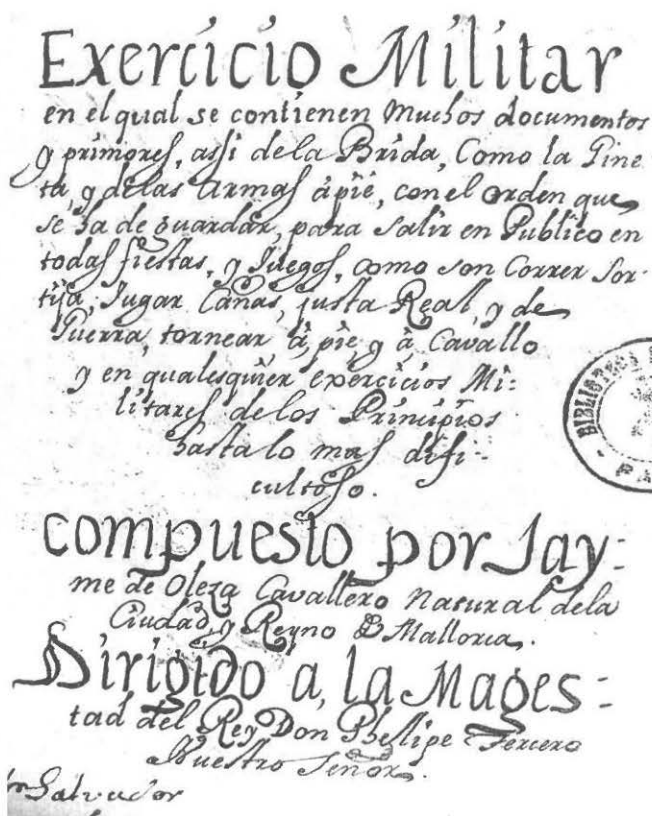 Exercicio Militar
en el qual se contienen Muchos documentos
y primores, assi de la Brida, Como la Gine
ta, y de las armas à pie, con el orden que
se ha de guardar, para salir en Publico en
todas fiestas, y Juegos, como son Correr Sor-
tija, Jugar Cañas, justa Real, y de
Guerra, tornear à pie y à Cavallo
y en qualesquier exercicios Mi:
litares de los Principios
hasta lo mas difi-
cultoso.
compuesto por Jay:
me de Oleza Cavallero Natural dela
Ciudad y Reyno D Mallorca.
Dirigido a la Mages:
tad del Rey Don Phelipe Tercero
Nuestro Señor.
Salvador